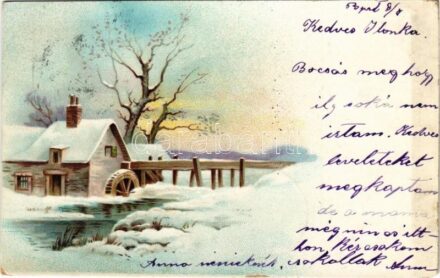 Bpest 8/8
Kedves Ilonka.
Bocsás meg hogy
ily soká nem
irtam. Kedves
leveleteket
megkaptam
de a mama
még nincs itt
hon, kézcsókom
Anna néninek csokollak Anna